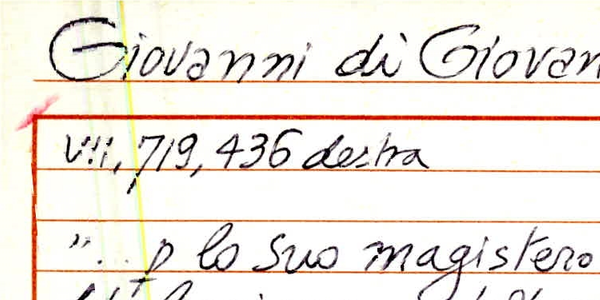 Giovanni di Giovan
VII, 719, 436 destra
"... p lo suo magistero